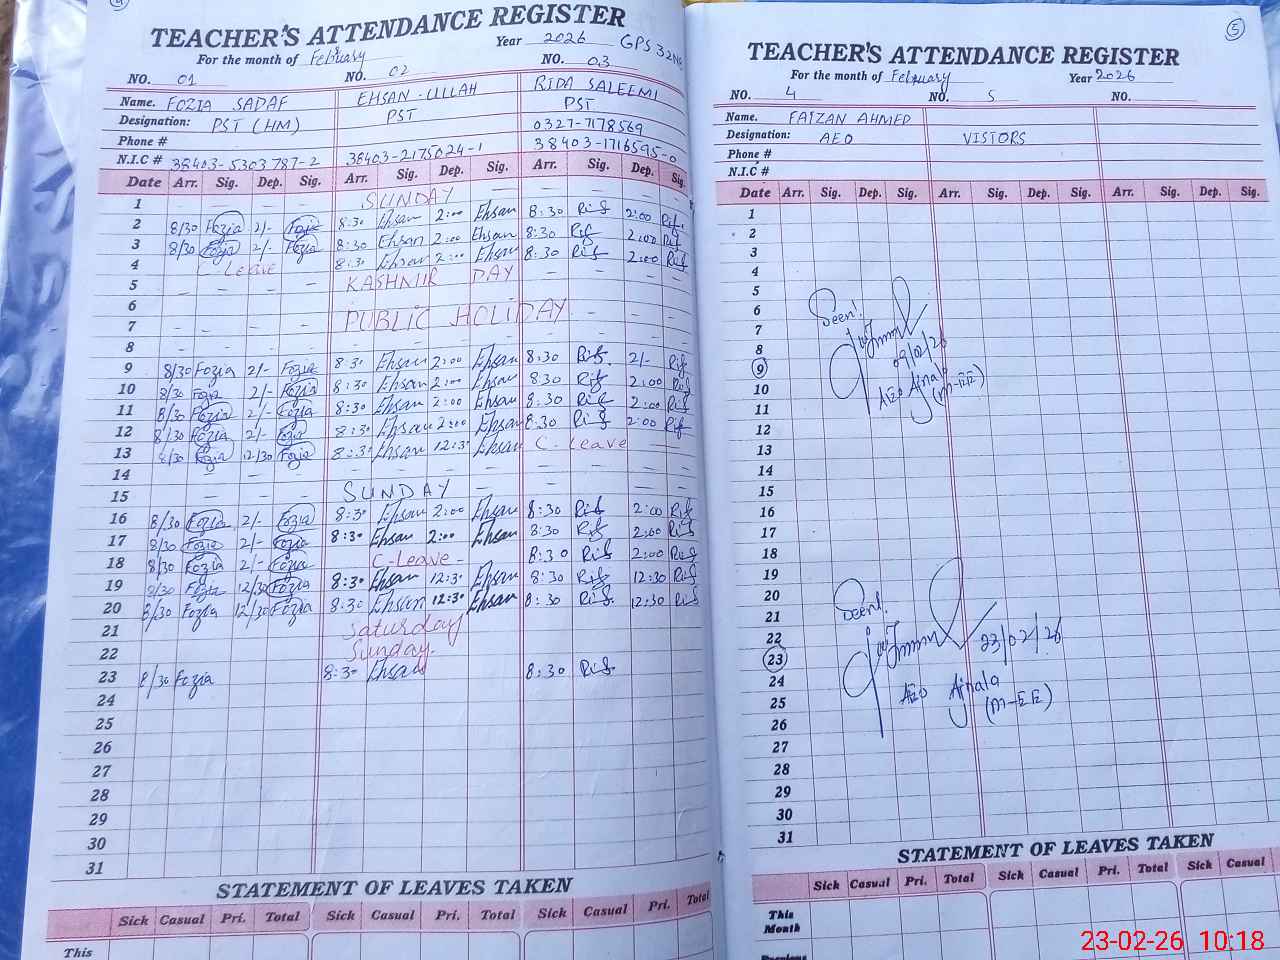 4
TEACHER'S ATTENDANCE REGISTER
For the month of February Year 2026 GPS 32NB
NO. 01 NO. 02 NO. 03
Name. FOZIA SADAF EHSAN-ULLAH RIDA SALEEMI
Designation: PST (HM) PST PST
Phone # 0327-7178569
N.I.C # 38403-5303787-2 38403-2175024-1 38403-1716595-0
Date Arr. Sig. Dep. Sig. Arr. Sig. Dep. Sig. Arr. Sig. Dep. Sig.
1 — — — — SUNDAY — — — — —
2 8/30 Fozia 2/- Fozia 8:30 Ehsan 2:00 Ehsan 8:30 Rif 2:00 Rif
3 8/30 Fozia 2/- Fozia 8:30 Ehsan 2:00 Ehsan 8:30 Rif 2:00 Rif
4 C-Leave 8:30 Ehsan 2:00 Ehsan 8:30 Rif 2:00 Rif
5 — — — — KASHMIR DAY — — — —
6
7 — — — — PUBLIC HOLIDAY — — —
8 — — — — — — — — — — — —
9 8/30 Fozia 2/- Fozia 8:30 Ehsan 2:00 Ehsan 8:30 Rif 2/- Rif
10 8/30 Fozia 2/- Fozia 8:30 Ehsan 2:00 Ehsan 8:30 Rif 2:00 Rif
11 8/30 Fozia 2/- Fozia 8:30 Ehsan 2:00 Ehsan 8:30 Rif 2:00 Rif
12 8/30 Fozia 2/- Fozia 8:30 Ehsan 2:00 Ehsan 8:30 Rif 2:00 Rif
13 8/30 Fozia 12/30 Fozia 8:3: Ehsan 12:3: Ehsan C-Leave — —
14 — — — — — — — — — — — —
15 — — — — SUNDAY — — — — —
16 8/30 Fozia 2/- Fozia 8:30 Ehsan 2:00 Ehsan 8:30 Rif 2:00 Rif
17 8/30 Fozia 2/- Fozia 8:30 Ehsan 2:00 Ehsan 8:30 Rif 2:00 Rif
18 8/30 Fozia 2/- Fozia C-Leave- 8:30 Rif 2:00 Rif
19 8/30 Fozia 12/30 Fozia 8:30 Ehsan 12:3: Ehsan 8:30 Rif 12:30 Rif
20 8/30 Fozia 12/30 Fozia 8:30 Ehsan 12:30 Ehsan 8:30 Rif 12:30 Rif
21 Saturday
22 Sunday
23 8/30 Fozia 8:30 Ehsan 8:30 Rif
24
25
26
27
28
29
30
31
STATEMENT OF LEAVES TAKEN
Sick Casual Pri. Total Sick Casual Pri. Total Sick Casual Pri. Total
This
5
TEACHER'S ATTENDANCE REGISTER
For the month of February Year 2026
NO. 4 NO. 5 NO.
Name. FAIZAN AHMED
Designation: AEO VISTORS
Phone #
N.I.C #
Date Arr. Sig. Dep. Sig. Arr. Sig. Dep. Sig. Arr. Sig. Dep. Sig.
1
2
3
4
5
6 Seen!
7
8 09/02/26
9 AEO Ajnala
10 (M-EE)
11
12
13
14
15
16
17
18
19
20
21 Seen!
22 23/02/26
23
24 AEO Ajnala
25 (M-EE)
26
27
28
29
30
31
STATEMENT OF LEAVES TAKEN
Sick Casual Pri. Total Sick Casual Pri. Total Sick Casual
This
Month
Previous
23-02-26 10:18